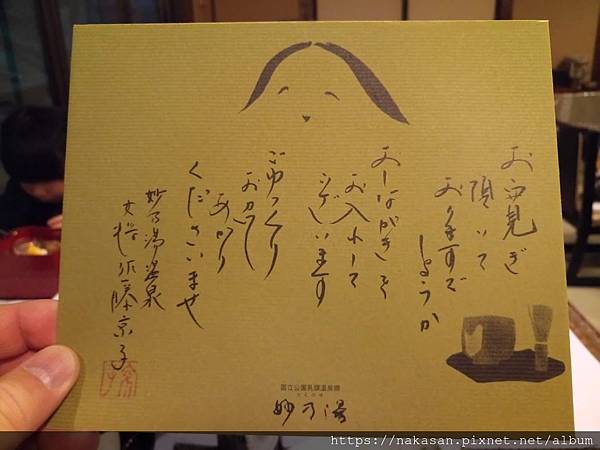 お寛ぎ
頂いて
おりますで
しょうか
おしながきを
お入れして
ございます
ごゆっくり
おめし
あがり
くださいませ
妙乃湯温泉
女将 佐藤京子
国立公園乳頭温泉郷
たえのゆ
妙乃湯
https://nakasan.pixnet.net/album